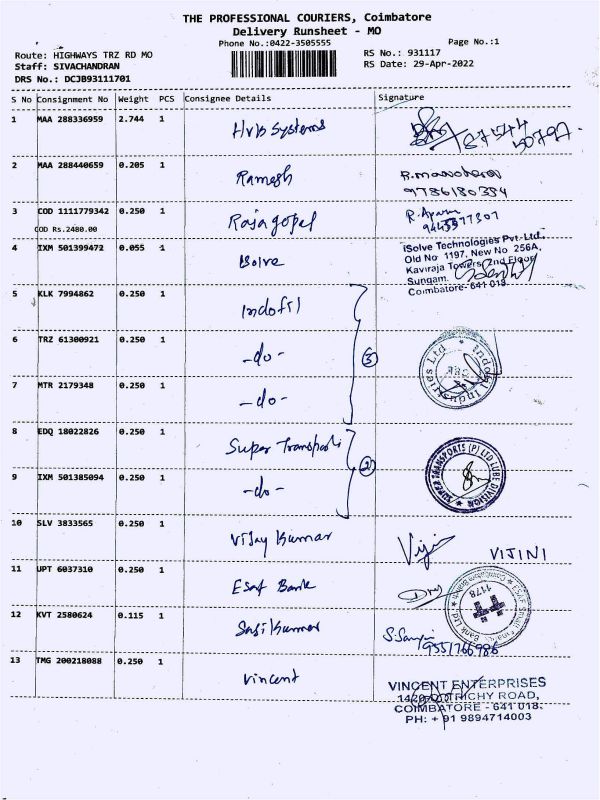 THE PROFESSIONAL COURIERS, Coimbatore
Delivery Runsheet - MO
Phone No.:0422-3505555
Page No.:1
Route: HIGHWAYS TRZ RD MO
RS No.: 931117
Staff: SIVACHANDRAN
RS Date: 29-Apr-2022
DRS No.: DCJB93111701
S No Consignment No Weight PCS Consignee Details Signature
1 MAA 288336959 2.744 1 Hvb Systems
2 MAA 288440659 0.205 1 Ramesh
9786180334
3 COD 1111779342 0.250 1 Rajagopal
COD Rs.2480.00
4 IXM 501399472 0.055 1 Isolve
iSolve Technologies Pvt. Ltd.,
Old No 1197, New No 256A,
Kaviraja Towers, 2nd Floor
Sungam,
Coimbatore- 641 018
5 KLK 7994862 0.250 1 Indofil
6 TRZ 61300921 0.250 1 -do- 3
Indofil Industries Ltd
7 MTR 2179348 0.250 1 -do-
8 EDQ 18022826 0.250 1 Super Transports
2
SUPER TRANSPORTS (P) LTD LUBE DIVISION
9 IXM 501385094 0.250 1 -do-
10 SLV 3833565 0.250 1 Vijay Kumar
VIJINI
11 UPT 6037310 0.250 1 Esaf Bank
1178
12 KVT 2580624 0.115 1 Sasikumar
9551766986
13 TMG 200218088 0.250 1 Vincent
VINCENT ENTERPRISES
TRICHY ROAD,
COIMBATORE - 641 018.
PH: + 91 9894714003